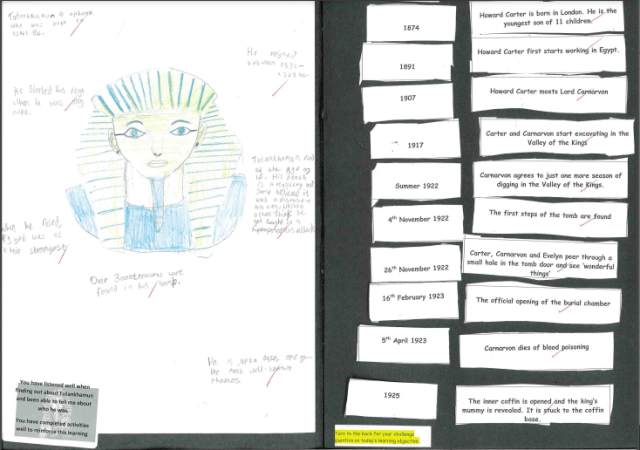 Tutankhamun is
who was born in
1341 Bc.
He reigned
between 1332 -
1323 bc.
He started his reign
when he was
nine.
Tutankhamun died
at the age of
. His death
is a mystery but
some believe it
was a disease in
his
others think he
got caught in a
hippopotamus attack
When he ruled,
Egypt was at
their strongest
Over 3000 treasures were
found in his tomb.
He is
the most well-known
pharaohs.
You have listened well when
finding out about Tutankhamun
and been able to tell me about
who he was.
You have completed activities
well to reinforce this learning
1874
Howard Carter is born in London. He is the
youngest son of 11 children.
1891
Howard Carter first starts working in Egypt.
1907
Howard Carter meets Lord Carnarvon
1917
Carter and Carnarvon start excavating in the
Valley of the Kings
Summer 1922
Carnarvon agrees to just one more season of
digging in the Valley of the Kings.
4th November 1922
The first steps of the tomb are found
26th November 1922
Carter, Carnarvon and Evelyn peer through a
small hole in the tomb door and see 'wonderful
things'
16th February 1923
The official opening of the burial chamber
5th April 1923
Carnarvon dies of blood poisoning
1925
The inner coffin is opened and the king's
mummy is revealed. It is stuck to the coffin
base.
Turn to the back for your challenge
question on today's learning objective.